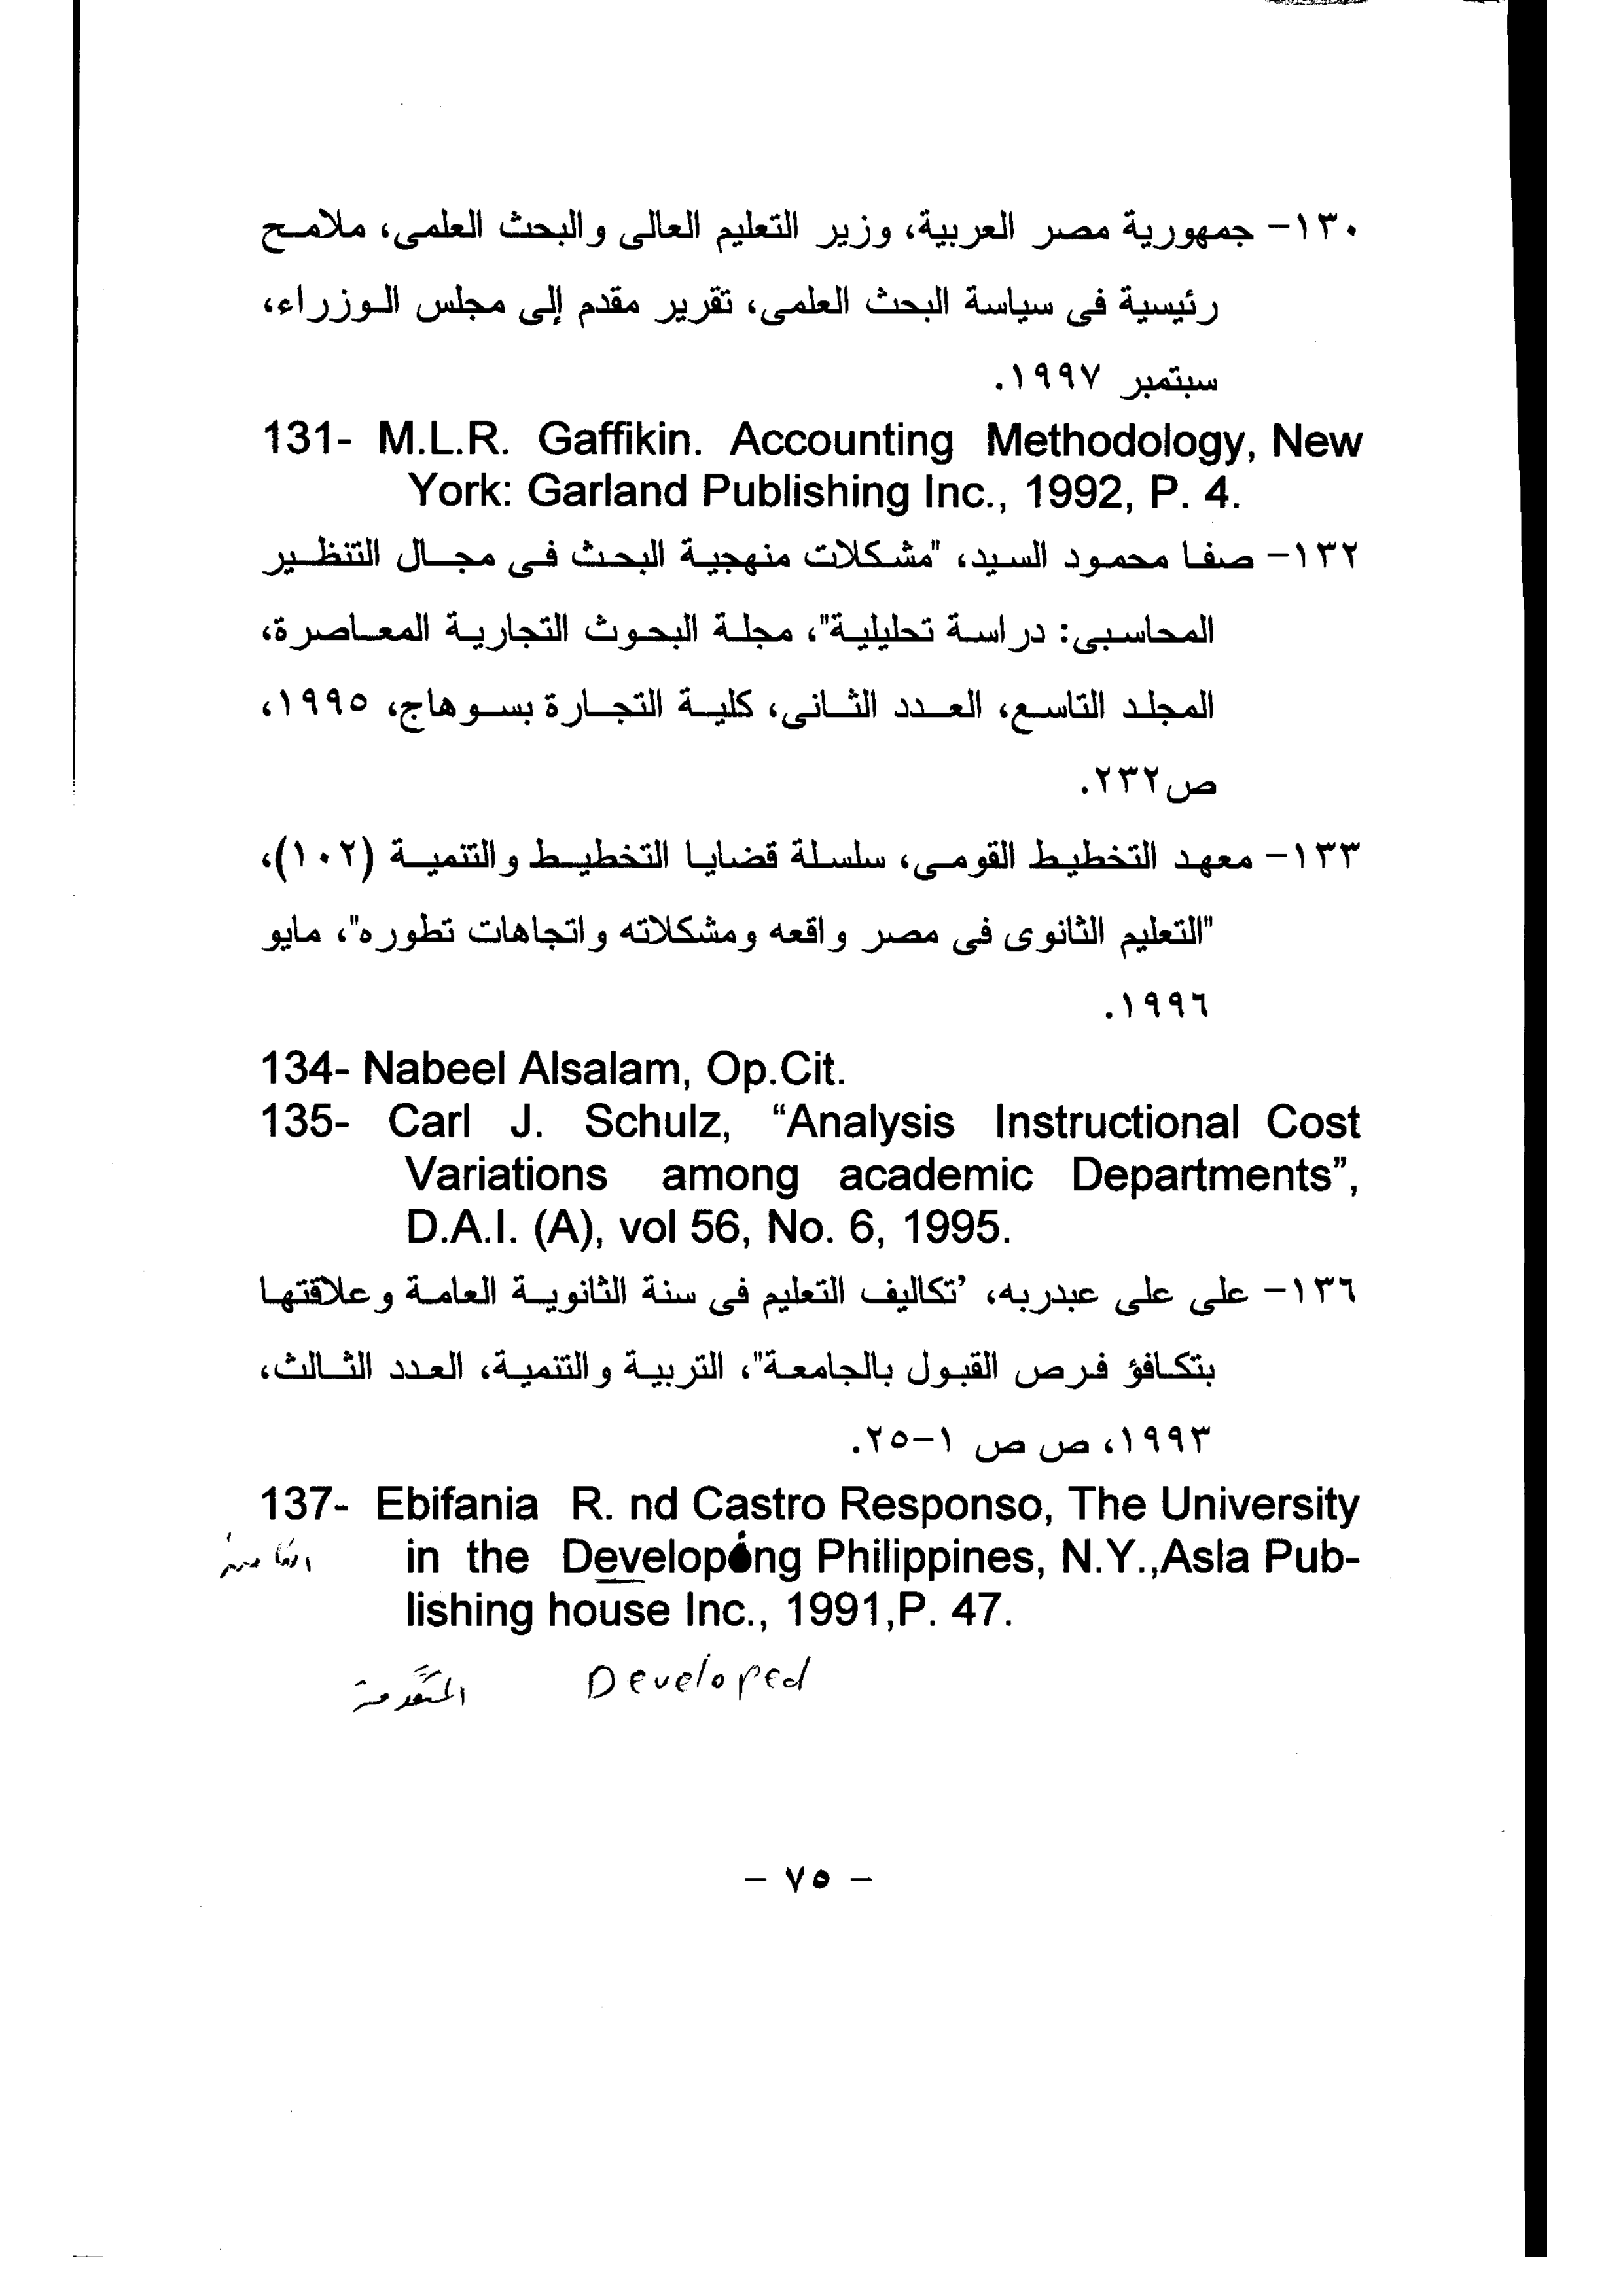 ١٣٠- جمهورية مصر العربية، وزير التعليم العالى والبحث العلمى، ملامح
رئيسية فى سياسة البحث العلمى، تقرير مقدم إلى مجلس الوزراء،
سبتمبر ١٩٩٧.
131- M.L.R. Gaffikin. Accounting Methodology, New
York: Garland Publishing Inc., 1992, P. 4.
١٣٢- صفا محمود السيد، "مشكلات منهجية البحث فى مجال التنظير
المحاسبى: دراسة تحليلية"، مجلة البحوث التجارية المعاصرة،
المجلد التاسع، العدد الثانى، كلية التجارة بسوهاج، ١٩٩٥،
ص٢٣٢.
١٣٣- معهد التخطيط القومى، سلسلة قضايا التخطيط والتنمية (١٠٢)،
"التعليم الثانوى فى مصر واقعه ومشكلاته واتجاهات تطوره"، مايو
١٩٩٦.
134- Nabeel Alsalam, Op.Cit.
135- Carl J. Schulz, “Analysis Instructional Cost
Variations among academic Departments”,
D.A.I. (A), vol 56, No. 6, 1995.
١٣٦- على على عبدربه، ’تكاليف التعليم فى سنة الثانوية العامة وعلاقتها
بتكافؤ فرص القبول بالجامعة"، التربية والتنمية، العدد الثالث،
١٩٩٣، ص ص ١-٢٥.
137- Ebifania R. nd Castro Responso, The University
in the Developing Philippines, N.Y.,Asla Pub-
lishing house Inc., 1991,P. 47.
Developed
المتقدمة
- ٧٥ -